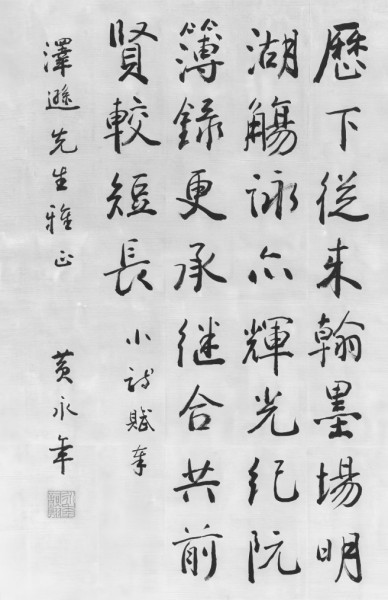 歷下從来翰墨場明
湖觴詠亦輝光纪阮
簿錄更承继合共前
賢較短長 小詩賦奉
澤遜先生雅正 黄永年